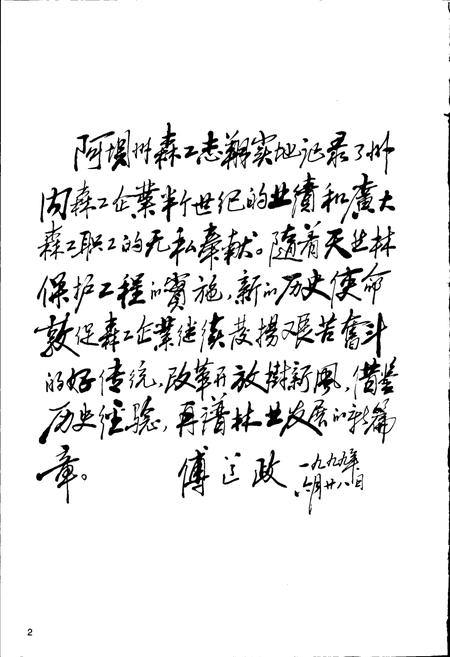 阿坝州森工志翔实地记录了州
内森工企業半个世纪的业績和廣大
森工职工的无私奉献。随着天然林
保护工程的實施，新的历史使命
敦促森工企業继续发揚艰苦奮斗
的好传统，改革开放樹新風，借鉴
历史经验，再谱林业发展的新篇
章。 傅 政 一九九九年
六月廿八日
2